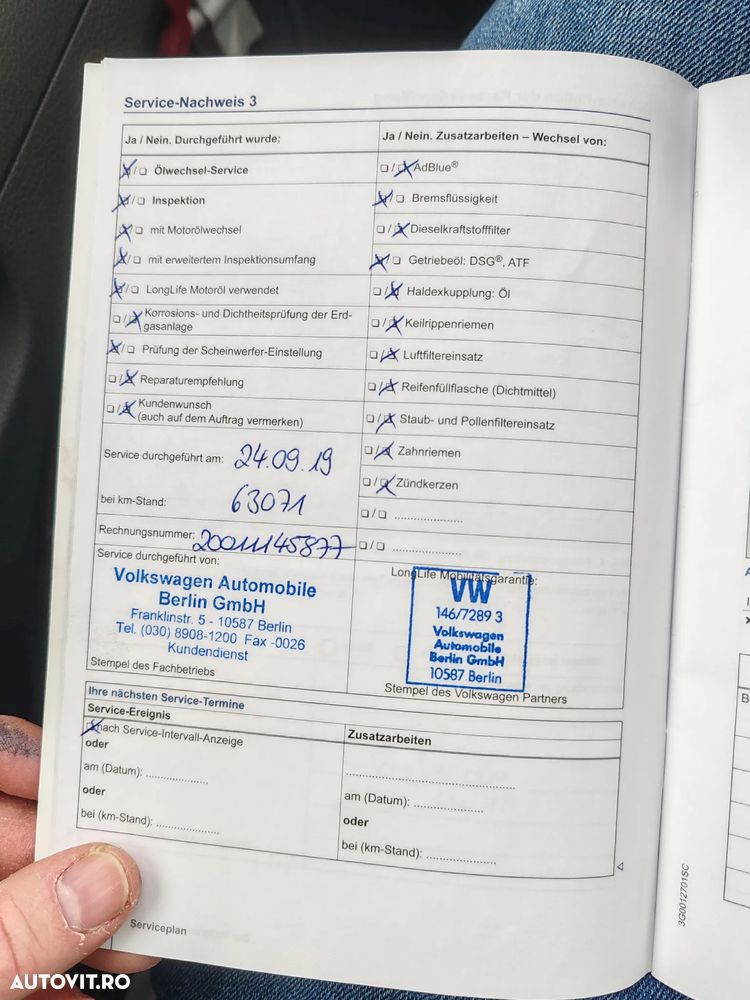 Service-Nachweis 3
Ja / Nein. Durchgeführt wurde:
☒/☐ Ölwechsel-Service
☒/☐ Inspektion
☒/☐ mit Motorölwechsel
☒/☐ mit erweitertem Inspektionsumfang
☒/☐ LongLife Motoröl verwendet
☐/☒ Korrosions- und Dichtheitsprüfung der Erd-
gasanlage
☒/☐ Prüfung der Scheinwerfer-Einstellung
☐/☒ Reparaturempfehlung
☐/☒ Kundenwunsch
(auch auf dem Auftrag vermerken)
Ja / Nein. Zusatzarbeiten – Wechsel von:
☐/☒ AdBlue®
☒/☐ Bremsflüssigkeit
☐/☒ Dieselkraftstofffilter
☒/☐ Getriebeöl: DSG®, ATF
☐/☒ Haldexkupplung: Öl
☐/☒ Keilrippenriemen
☐/☒ Luftfiltereinsatz
☐/☒ Reifenfüllflasche (Dichtmittel)
☐/☒ Staub- und Pollenfiltereinsatz
☐/☒ Zahnriemen
☐/☒ Zündkerzen
☐/☐ ....................
☐/☐ ....................
Service durchgeführt am: 24.09.19
bei km-Stand: 63071
Rechnungsnummer: 20011145877
Service durchgeführt von:
Volkswagen Automobile
Berlin GmbH
Franklinstr. 5 - 10587 Berlin
Tel. (030) 8908-1200 Fax -0026
Kundendienst
Stempel des Fachbetriebs
LongLife Mobilitätsgarantie:
VW
146/7289 3
Volkswagen
Automobile
Berlin GmbH
10587 Berlin
Stempel des Volkswagen Partners
Ihre nächsten Service-Termine
Service-Ereignis
☒ nach Service-Intervall-Anzeige
oder
am (Datum): ....................
oder
bei (km-Stand): ....................
Zusatzarbeiten
..................................................
am (Datum): ......................
oder
bei (km-Stand): ......................
Serviceplan
3G0012701SC
AUTOVIT.RO